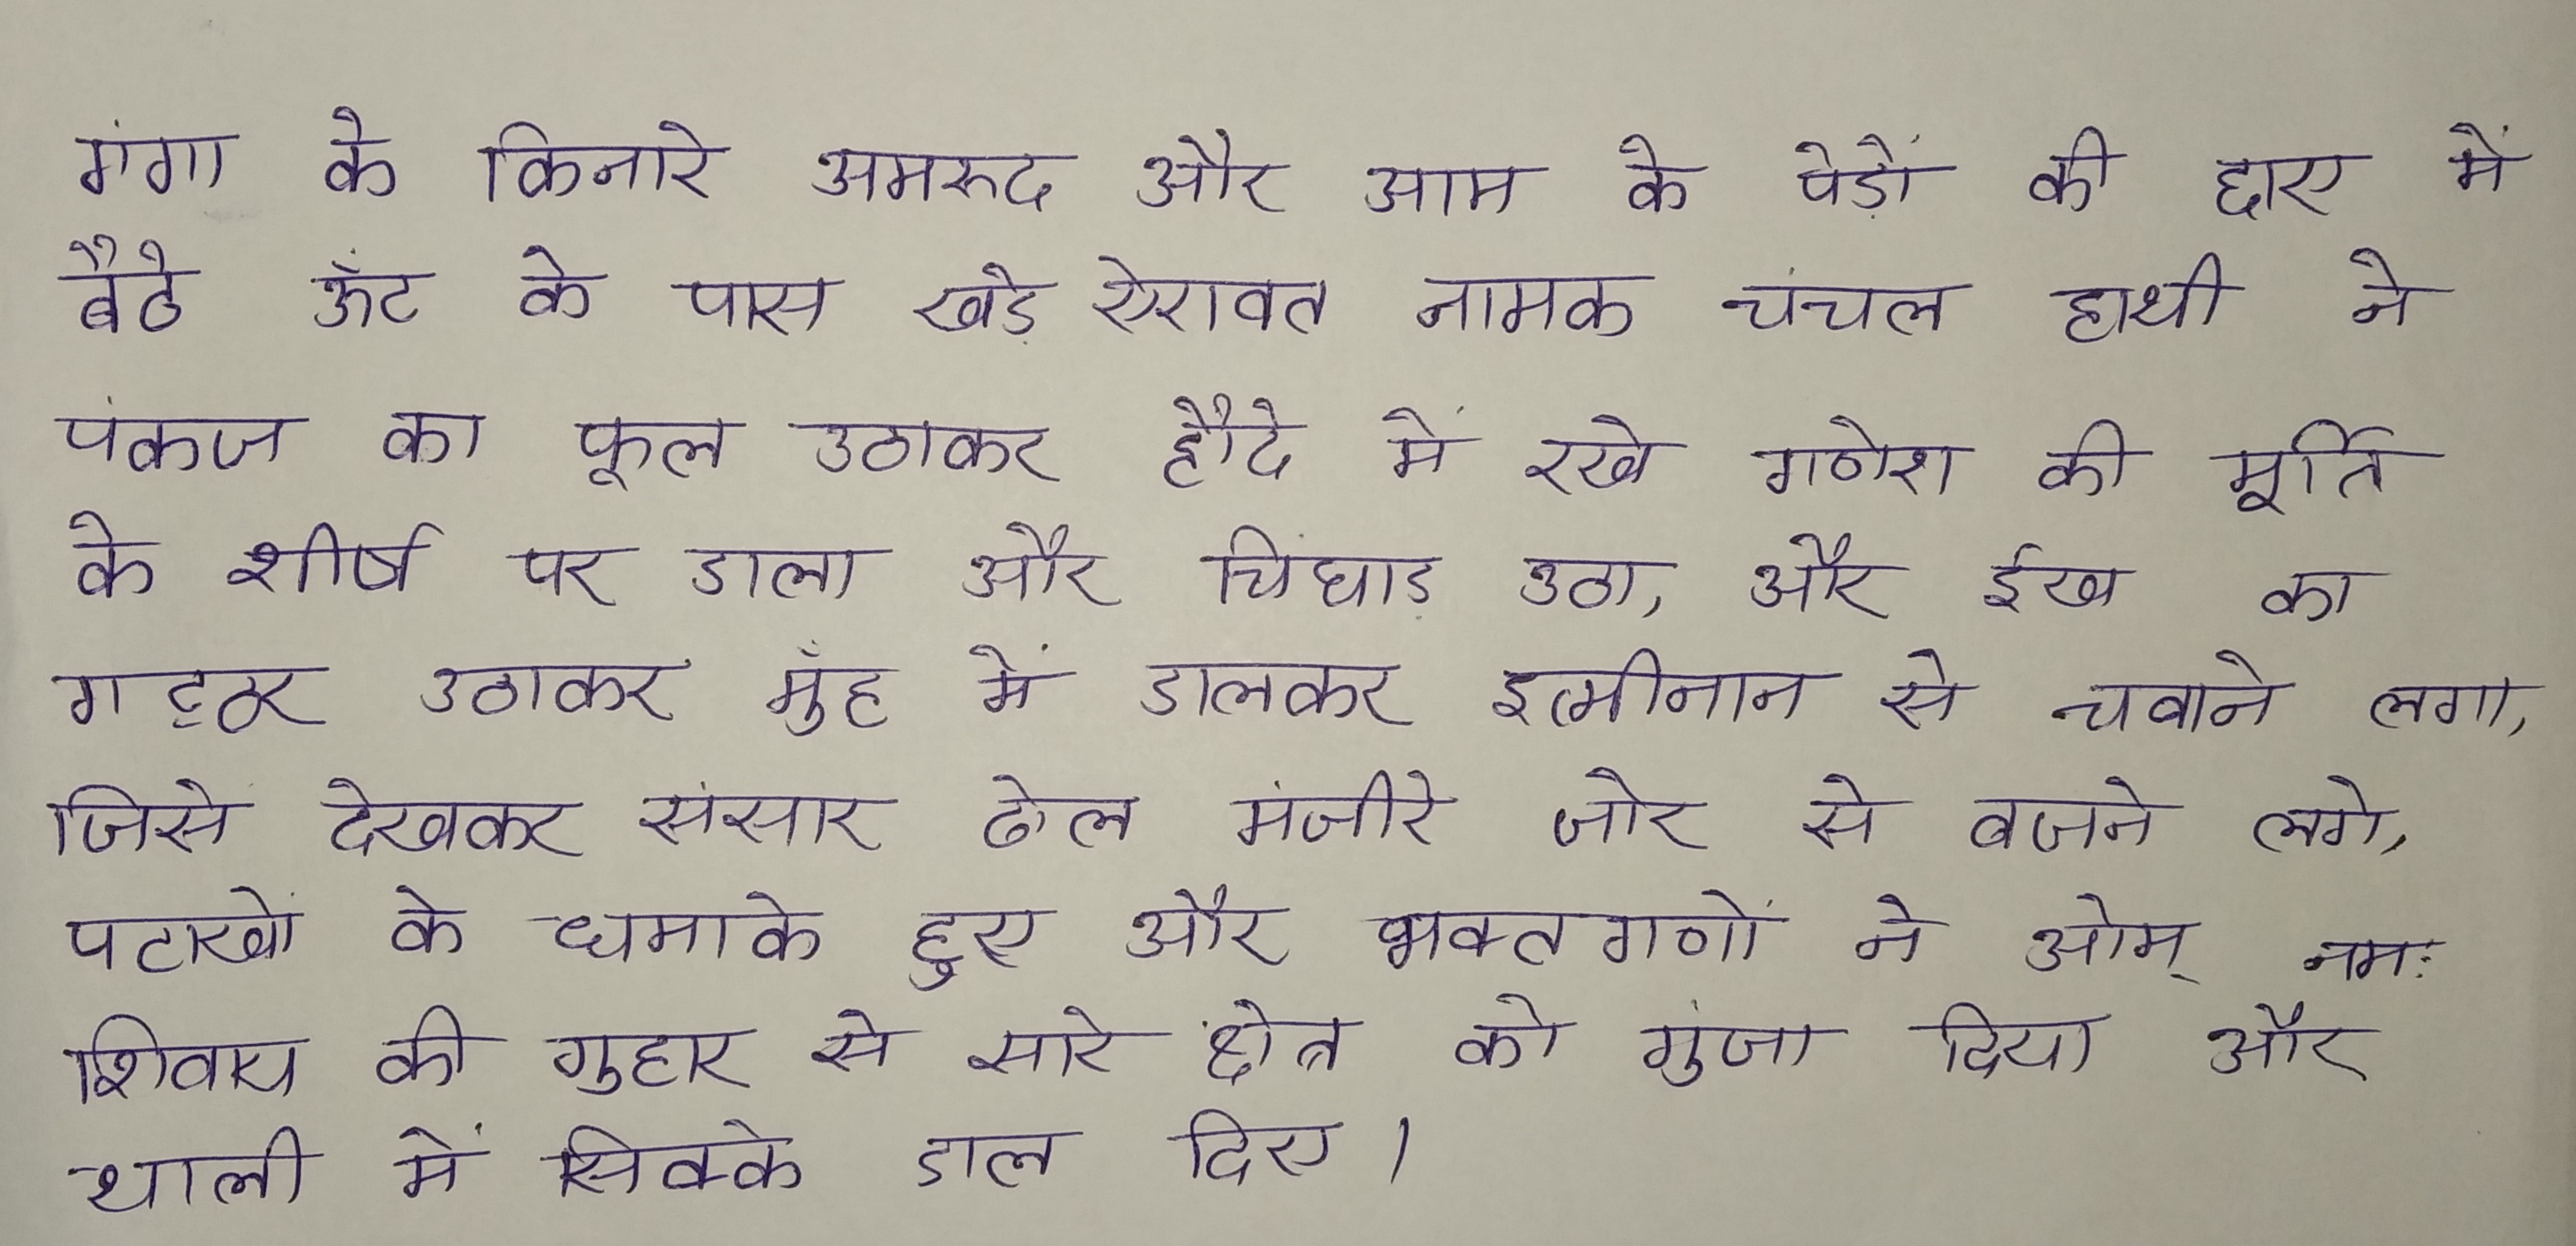 गंगा के किनारे अमरूद और आम के पेड़ों की छाए में
बैठे ऊँट के पास खड़े ऐरावत नामक चंचल हाथी ने
पंकज का फूल उठाकर हौदे में रखे गणेश की मूर्ति
के शीर्ष पर डाला और चिंघाड़ उठा, और ईख का
गट्ठर उठाकर मुँह में डालकर इत्मीनान से चबाने लगा,
जिसे देखकर संसार ढोल मंजीरे जोर से बजने लगे,
पटाखों के धमाके हुए और भक्तगणों ने ओम् नमः
शिवाय की गुहार से सारे क्षेत्र को गुंजा दिया और
थाली में सिक्के डाल दिए।